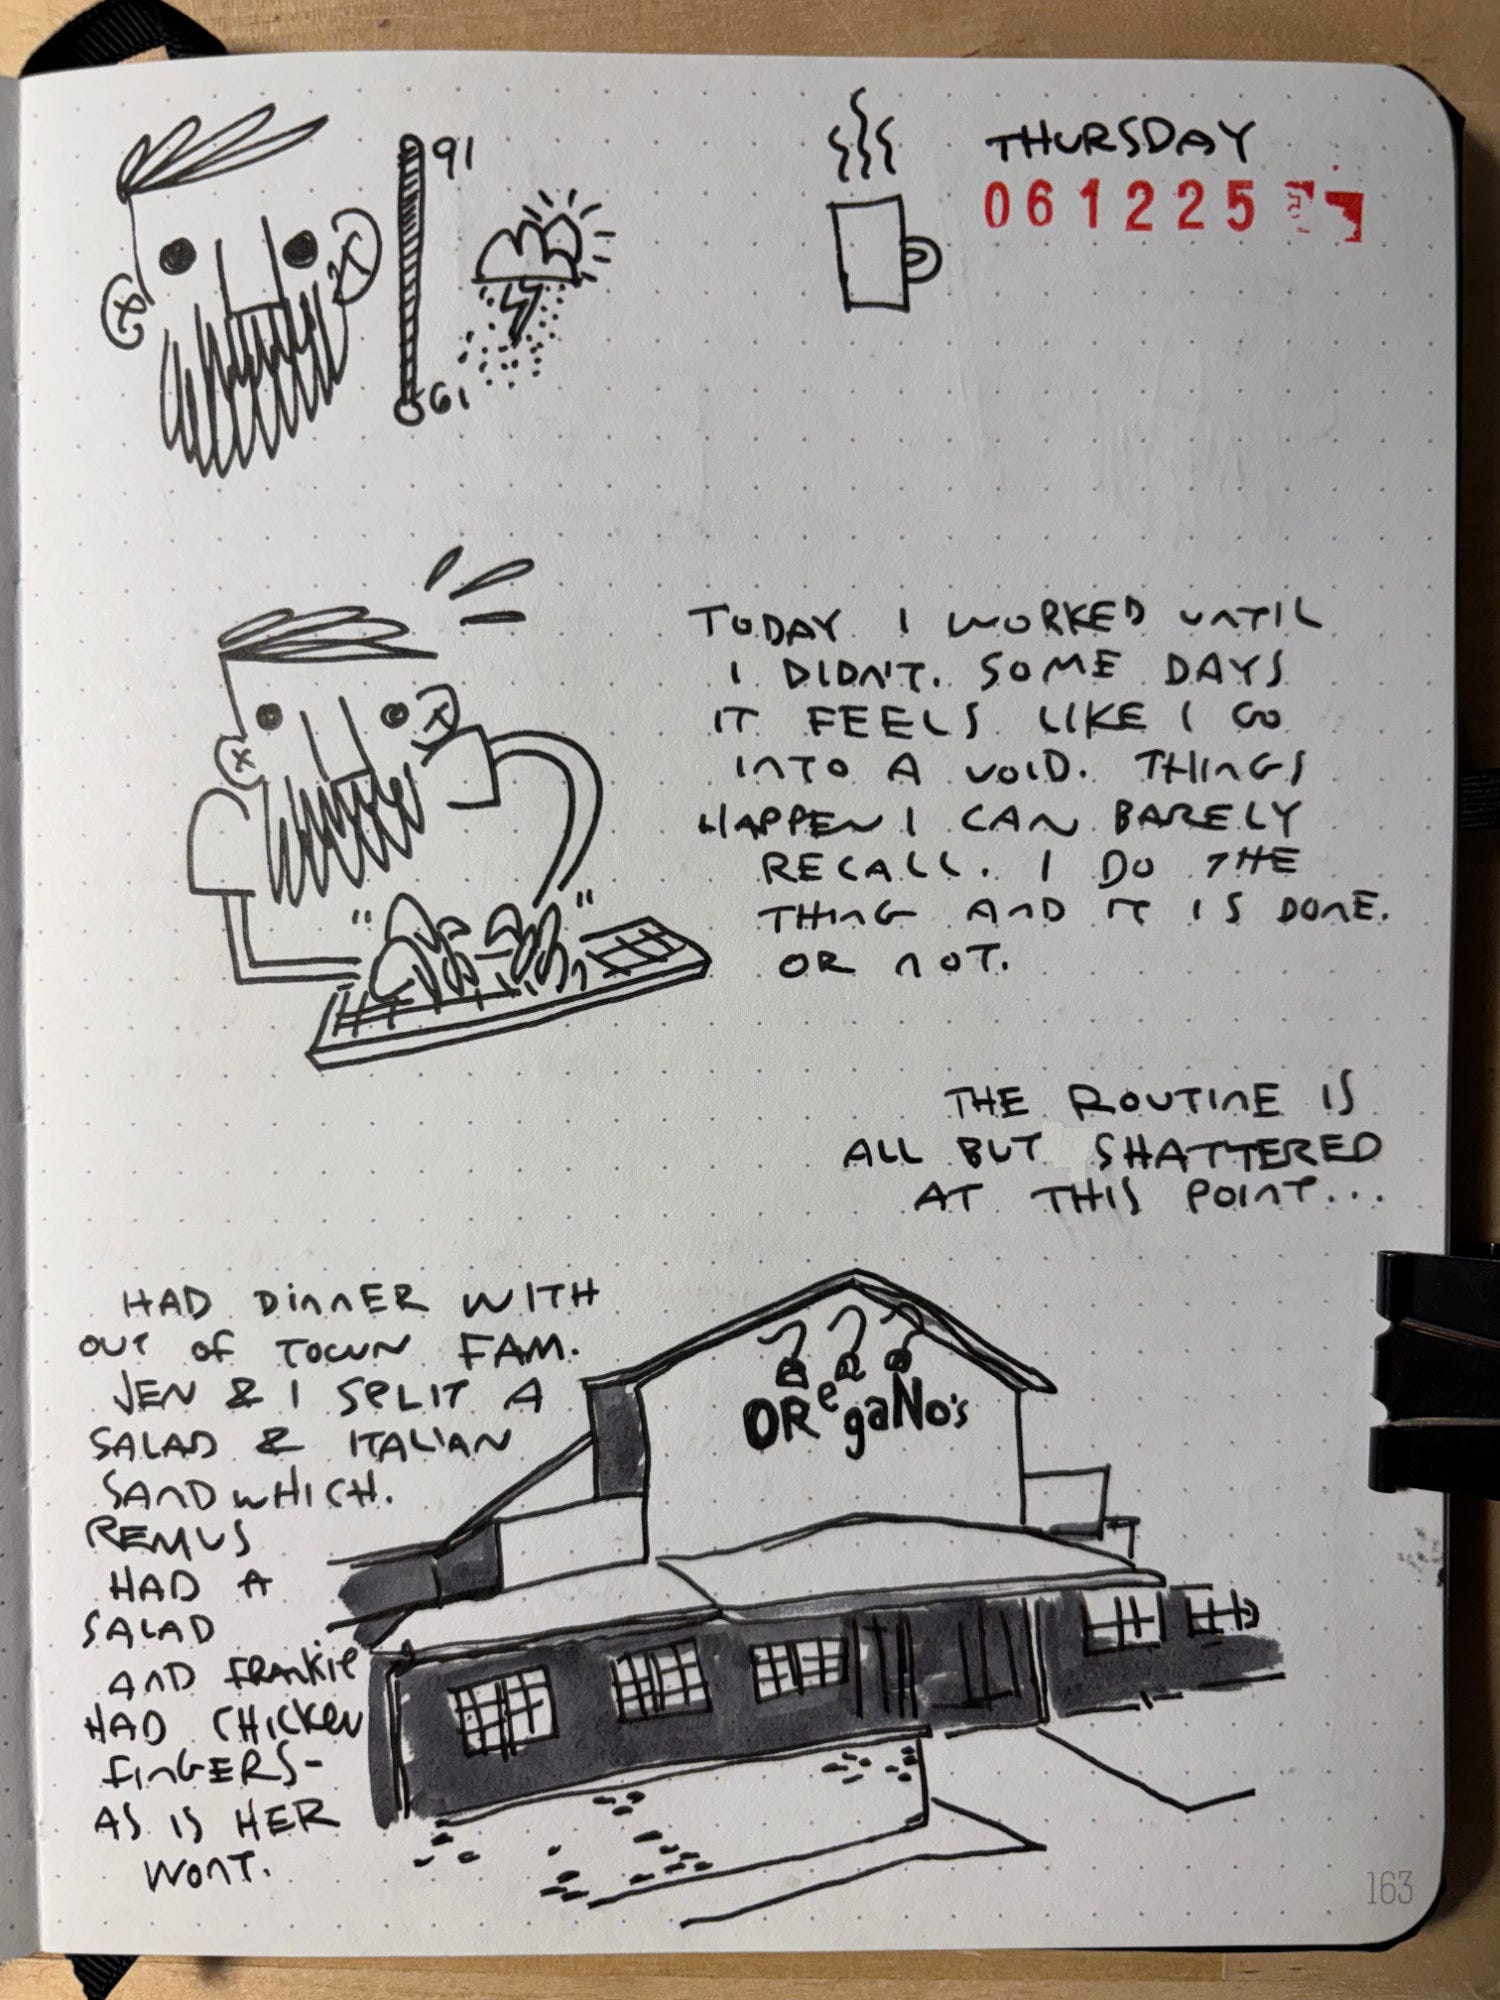 91
61
THURSDAY
061225
TODAY I WORKED UNTIL
I DIDN'T. SOME DAYS
IT FEELS LIKE I GO
INTO A VOID. THINGS
HAPPEN I CAN BARELY
RECALL. I DO THE
THING AND IT IS DONE.
OR NOT.
THE ROUTINE IS
ALL BUT SHATTERED
AT THIS POINT...
HAD DINNER WITH
OUT OF TOWN FAM.
JEN & I SPLIT A
SALAD & ITALIAN
SANDWHICH.
REMUS
HAD A
SALAD
AND FRANKIE
HAD CHICKEN
FINGERS-
AS IS HER
WONT.
OReGaNo's
163